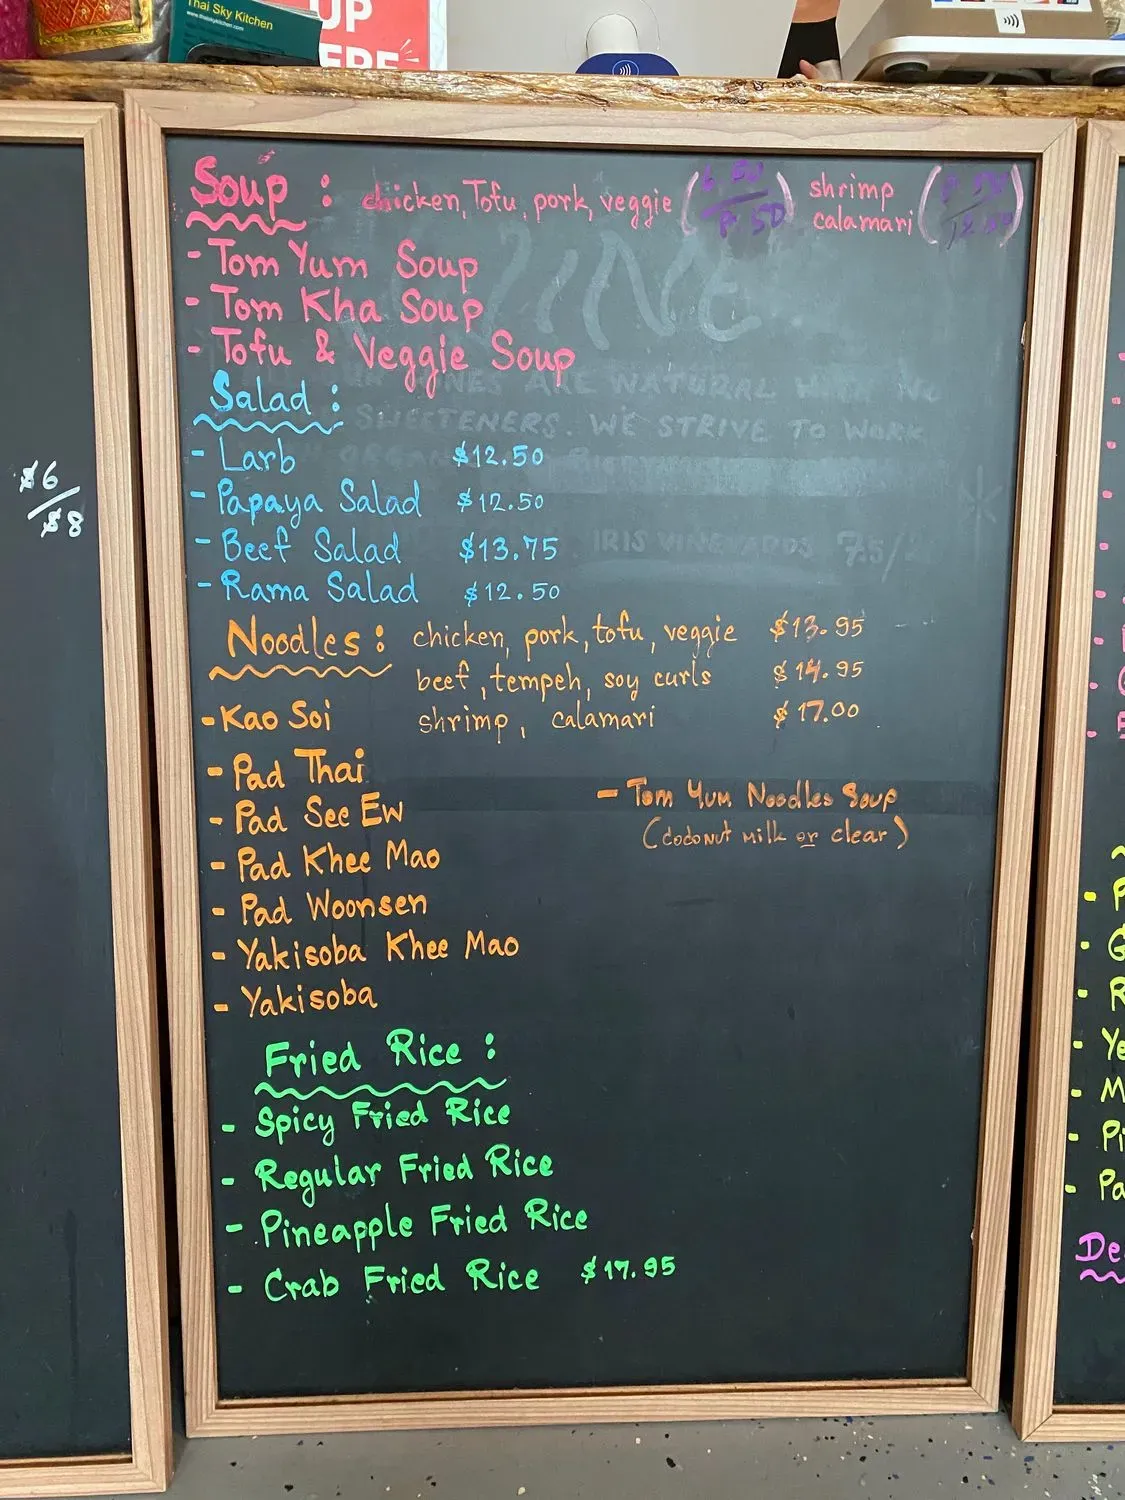 Thai Sky Kitchen
www.thaiskykitchen.com
UP
ERE
Soup : chicken, Tofu, pork, veggie
shrimp
calamari
- Tom Yum Soup
- Tom Kha Soup
- Tofu & Veggie Soup
WINE
WINES ARE NATURAL WITH NO
SWEETENERS. WE STRIVE TO WORK
IRIS VINEYARDS
Salad :
- Larb $12.50
- Papaya Salad $12.50
- Beef Salad $13.75
- Rama Salad $12.50
Noodles : chicken, pork, tofu, veggie $13.95
beef, tempeh, soy curls $14.95
- Kao Soi shrimp, calamari $17.00
- Pad Thai
- Pad See Ew
- Pad Khee Mao
- Pad Woonsen
- Yakisoba Khee Mao
- Yakisoba
- Tom Yum Noodles Soup
(coconut milk or clear)
Fried Rice :
- Spicy Fried Rice
- Regular Fried Rice
- Pineapple Fried Rice
- Crab Fried Rice $17.95
$6
/$8